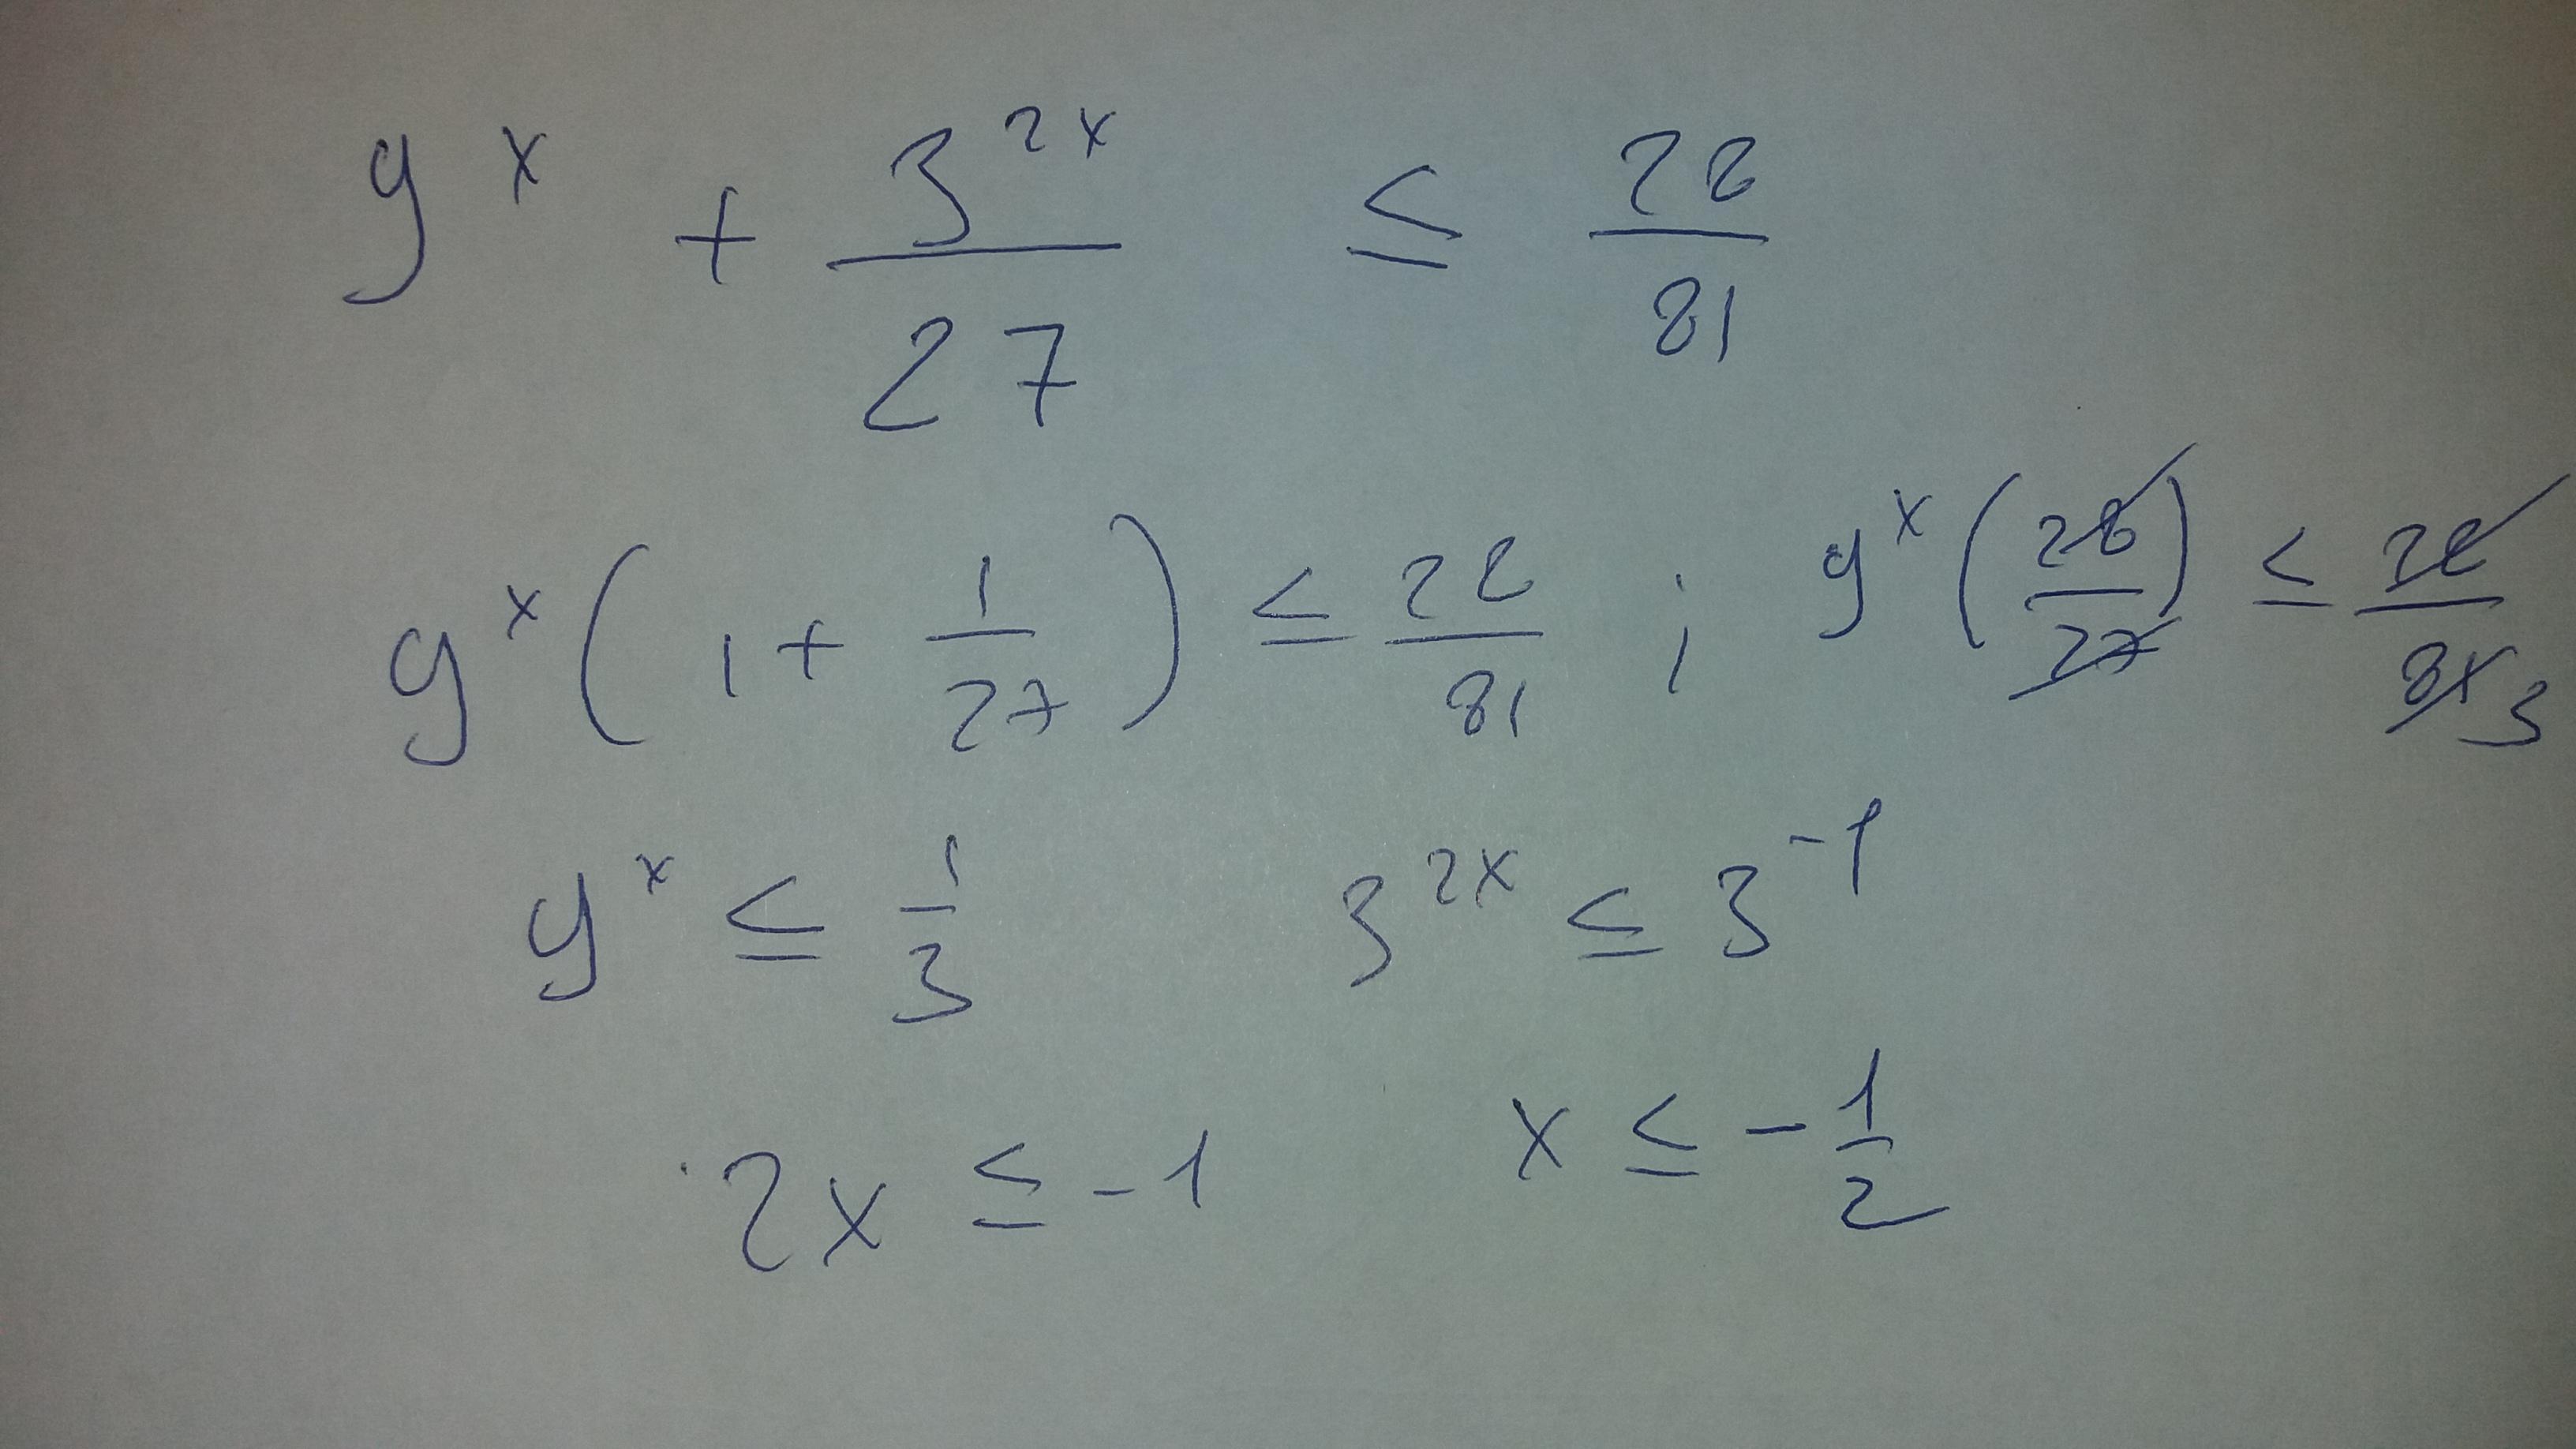 9^x + 3^{2x}/27 ≤ 28/81
9^x (1 + 1/27) ≤ 28/81 ; 9^x (28/27) ≤ 28/81 3
9^x ≤ 1/3 3^{2x} ≤ 3^{-1}
2x ≤ -1 x ≤ -1/2